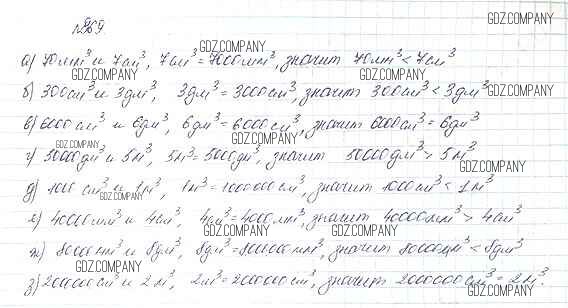 №869
GDZ.COMPANY
а) 70мм³ и 7см³, 7см³=7000мм³, значит 70мм³<7см³
б) 300см³ и 3дм³, 3дм³=3000см³, значит 300см³<3дм³
в) 6000см³ и 6дм³, 6дм³=6000см³, значит 6000см³=6дм³
г) 50000дм³ и 5м³, 5м³=5000дм³, значит 50000дм³>5м³
д) 1000см³ и 1м³, 1м³=1000000см³, значит 1000см³<1м³
е) 40000мм³ и 4см³, 4см³=4000мм³, значит 40000мм³>4см³
ж) 80000мм³ и 8дм³, 8дм³=8000000мм³, значит 80000мм³<8дм³
з) 2000000см³ и 2м³, 2м³=2000000см³, значит 2000000см³=2м³.